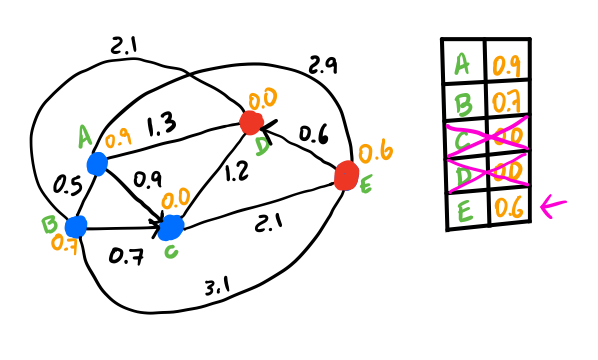 2.1
2.9
A 0.9
1.3
0.0
D
0.6
0.6
E
0.5
0.9
0.0
1.2
B
0.7
0.7
C
2.1
3.1
A 0.9
B 0.7
C 0.0
D 0.0
E 0.6